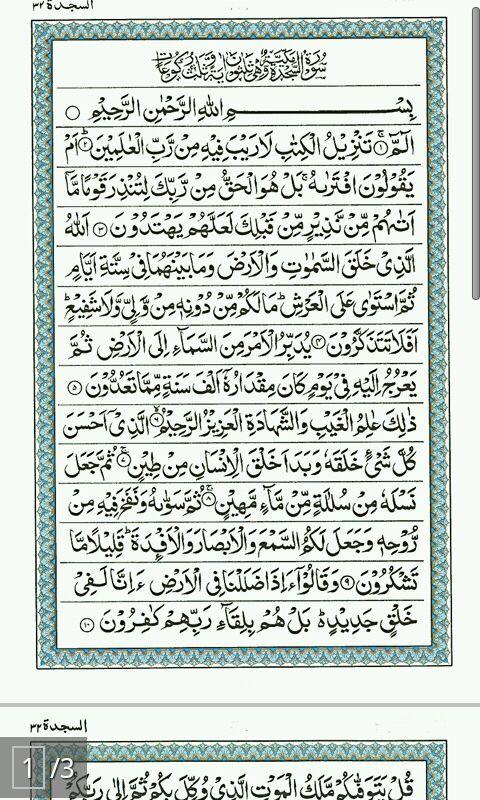 السجدة ٣٢
سورة السجدة مكية وهي ثلثون اية وثلث ركوعات
بِسْــــــمِ اللّٰهِ الرَّحْمٰنِ الرَّحِيْمِ ○
الٓمّٓ ۚ﴿۱﴾ تَنْزِيْلُ الْكِتٰبِ لَا رَيْبَ فِيْهِ مِنْ رَّبِّ الْعٰلَمِيْنَ ؕ﴿۲﴾ اَمْ
يَقُوْلُوْنَ افْتَرٰىهُ ۚ بَلْ هُوَ الْحَقُّ مِنْ رَّبِّكَ لِتُنْذِرَ قَوْمًا مَّاۤ
اَتٰىهُمْ مِّنْ نَّذِيْرٍ مِّنْ قَبْلِكَ لَعَلَّهُمْ يَهْتَدُوْنَ ﴿۳﴾ اَللّٰهُ
الَّذِيْ خَلَقَ السَّمٰوٰتِ وَالْاَرْضَ وَمَا بَيْنَهُمَا فِيْ سِتَّةِ اَيَّامٍ
ثُمَّ اسْتَوٰى عَلَى الْعَرْشِ ؕ مَا لَكُمْ مِّنْ دُوْنِهٖ مِنْ وَّلِيٍّ وَّلَا شَفِيْعٍ ؕ
اَفَلَا تَتَذَكَّرُوْنَ ﴿۴﴾ يُدَبِّرُ الْاَمْرَ مِنَ السَّمَآءِ اِلَى الْاَرْضِ ثُمَّ
يَعْرُجُ اِلَيْهِ فِيْ يَوْمٍ كَانَ مِقْدَارُهٗۤ اَلْفَ سَنَةٍ مِّمَّا تَعُدُّوْنَ ﴿۵﴾
ذٰلِكَ عٰلِمُ الْغَيْبِ وَالشَّهَادَةِ الْعَزِيْزُ الرَّحِيْمُ ۙ﴿۶﴾ الَّذِيْۤ اَحْسَنَ
كُلَّ شَيْءٍ خَلَقَهٗ وَبَدَاَ خَلْقَ الْاِنْسَانِ مِنْ طِيْنٍ ۚ﴿۷﴾ ثُمَّ جَعَلَ
نَسْلَهٗ مِنْ سُلٰلَةٍ مِّنْ مَّآءٍ مَّهِيْنٍ ۚ﴿۸﴾ ثُمَّ سَوّٰىهُ وَنَفَخَ فِيْهِ مِنْ
رُّوْحِهٖ وَجَعَلَ لَكُمُ السَّمْعَ وَالْاَبْصَارَ وَالْاَفْـِٕدَةَ ؕ قَلِيْلًا مَّا
تَشْكُرُوْنَ ﴿۹﴾ وَقَالُوْۤا ءَاِذَا ضَلَلْنَا فِي الْاَرْضِ ءَاِنَّا لَفِيْ
خَلْقٍ جَدِيْدٍ ؕ۬ بَلْ هُمْ بِلِقَآءِ رَبِّهِمْ كٰفِرُوْنَ ﴿۱۰﴾
السجدة ٣٢
1/3
قُلْ يَتَوَفّٰىكُمْ مَّلَكُ الْمَوْتِ الَّذِيْ وُكِّلَ بِكُمْ ثُمَّ اِلٰى رَبِّكُمْ